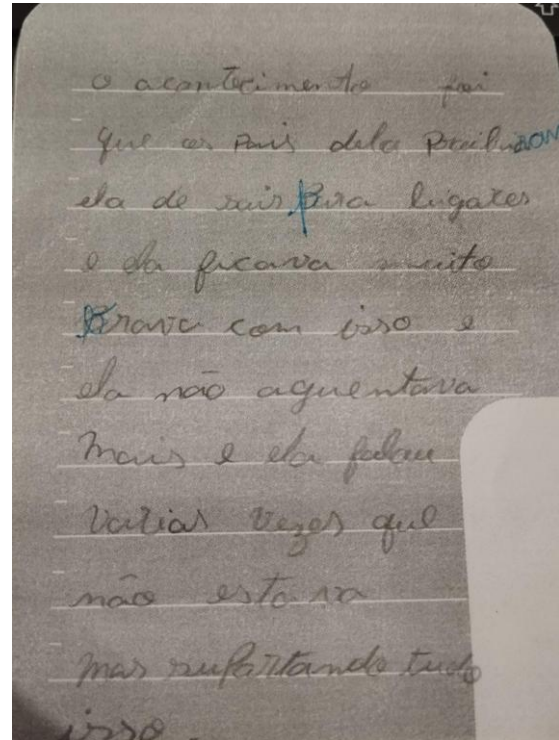 o acontecimento foi
que os Pais dela Proibiram
ela de sair Para lugares
e ela ficava muito
Brava com isso e
ela não aguentava
mais e ela falou
Varias vezes que
não estava
mas supartando tudo
isso.